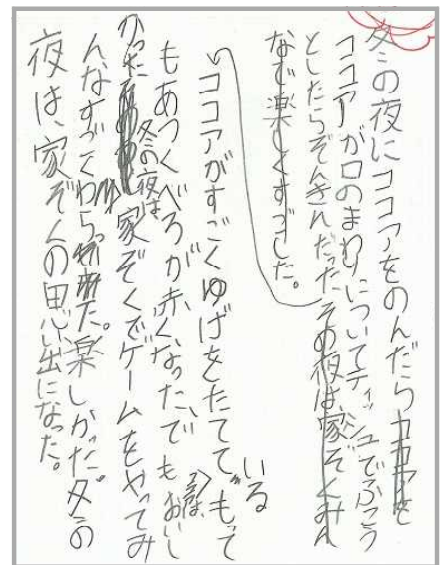 冬の夜にココアをのんだらココアを
ココアが口のまわりについてティッシュでふこう
としたらぞんきんだったその夜は家ぞくみん
なで楽しくすごした。
ココアがすごくゆげをたてて もって いる
もあつくべろが赤くなった、でもおいし
かった 冬の夜は家ぞくでゲームをやってみ
んなすごくわらった。楽しかった冬の
夜は、家ぞくの思い出になった。